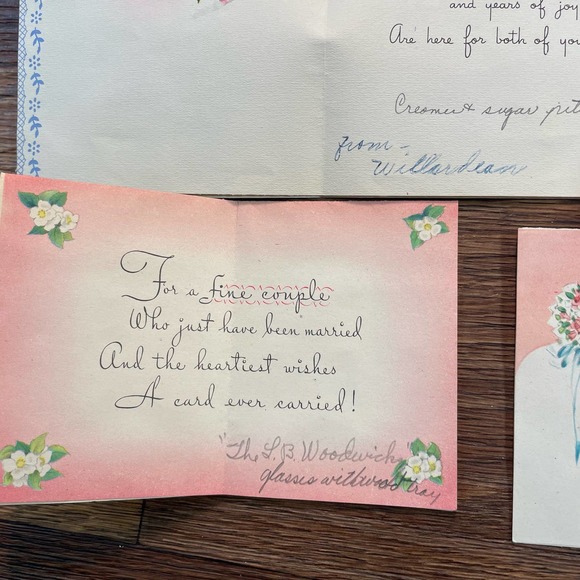 and years of joy
Are here for both of you
Creamer & sugar
from -
Willardean
For a fine couple
Who just have been married
And the heartiest wishes
A card ever carried!
"The L.B. Woodwicks"
glasses with wood tray